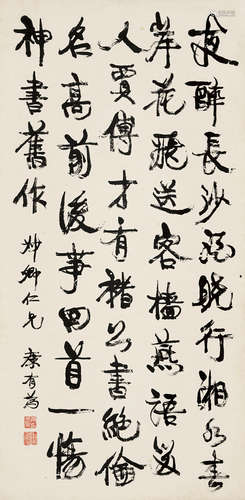 夜醉長沙酒曉行湘水春
岸花飛送客檣燕語留
人賈傅才有褚公書絕倫
名高前後事回首一傷
神書舊作 妙卿仁兄 康有為